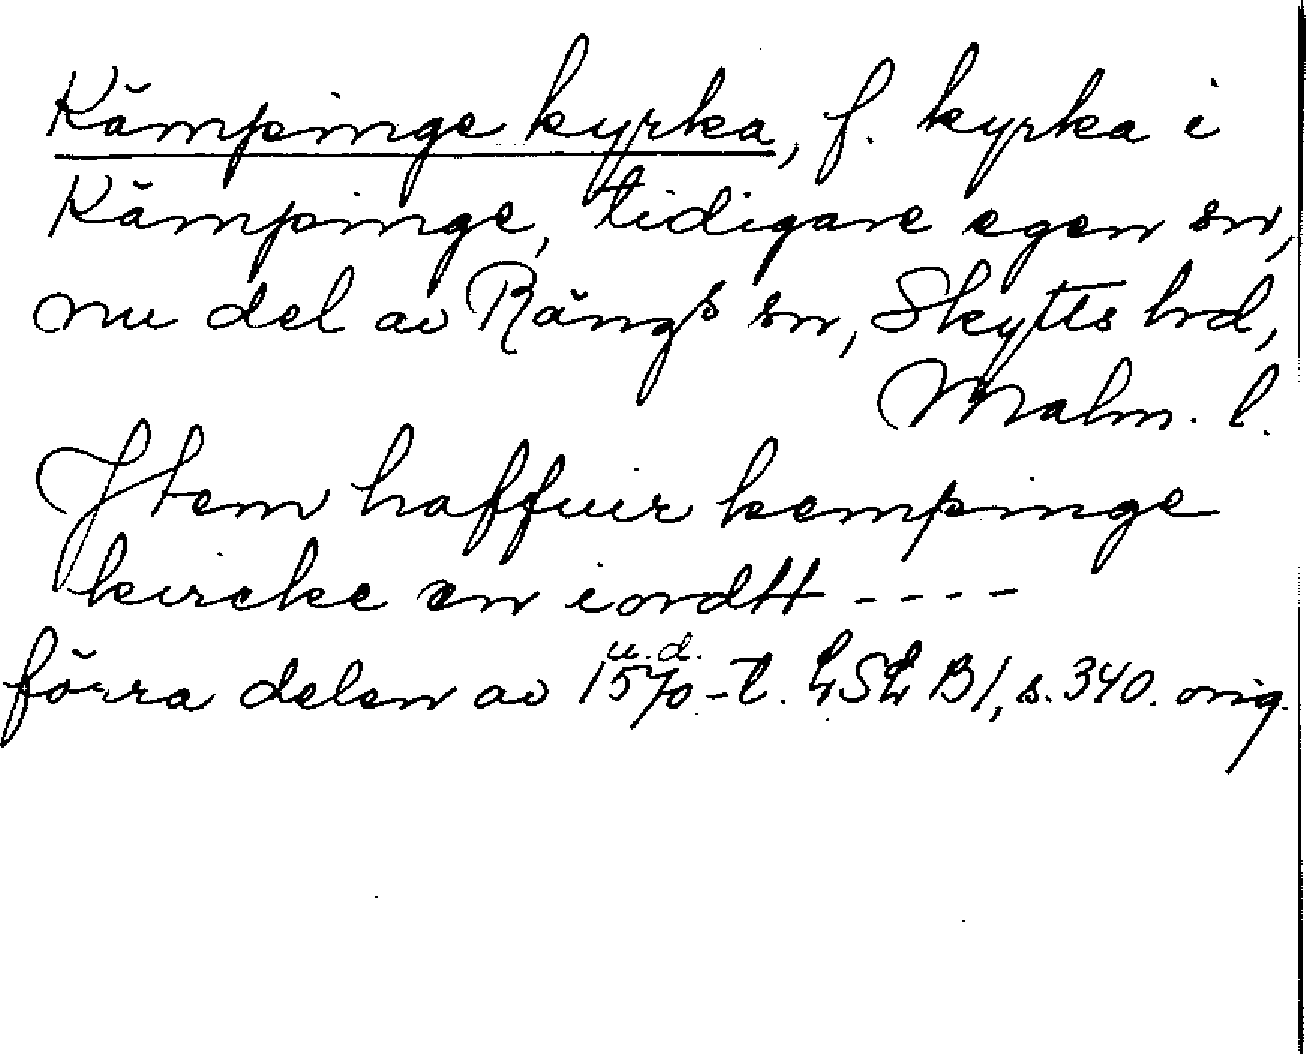 Kämpinge kyrka, f. kyrka i
Kämpinge, tidigare egen sn,
nu del av Rängs sn, Skytts hd,
Malm. l.
Jtem haffuir kempinge
kircke en iordtt ----
u.d.
förra delen av 1570-t. LSL B1, s. 340. orig.